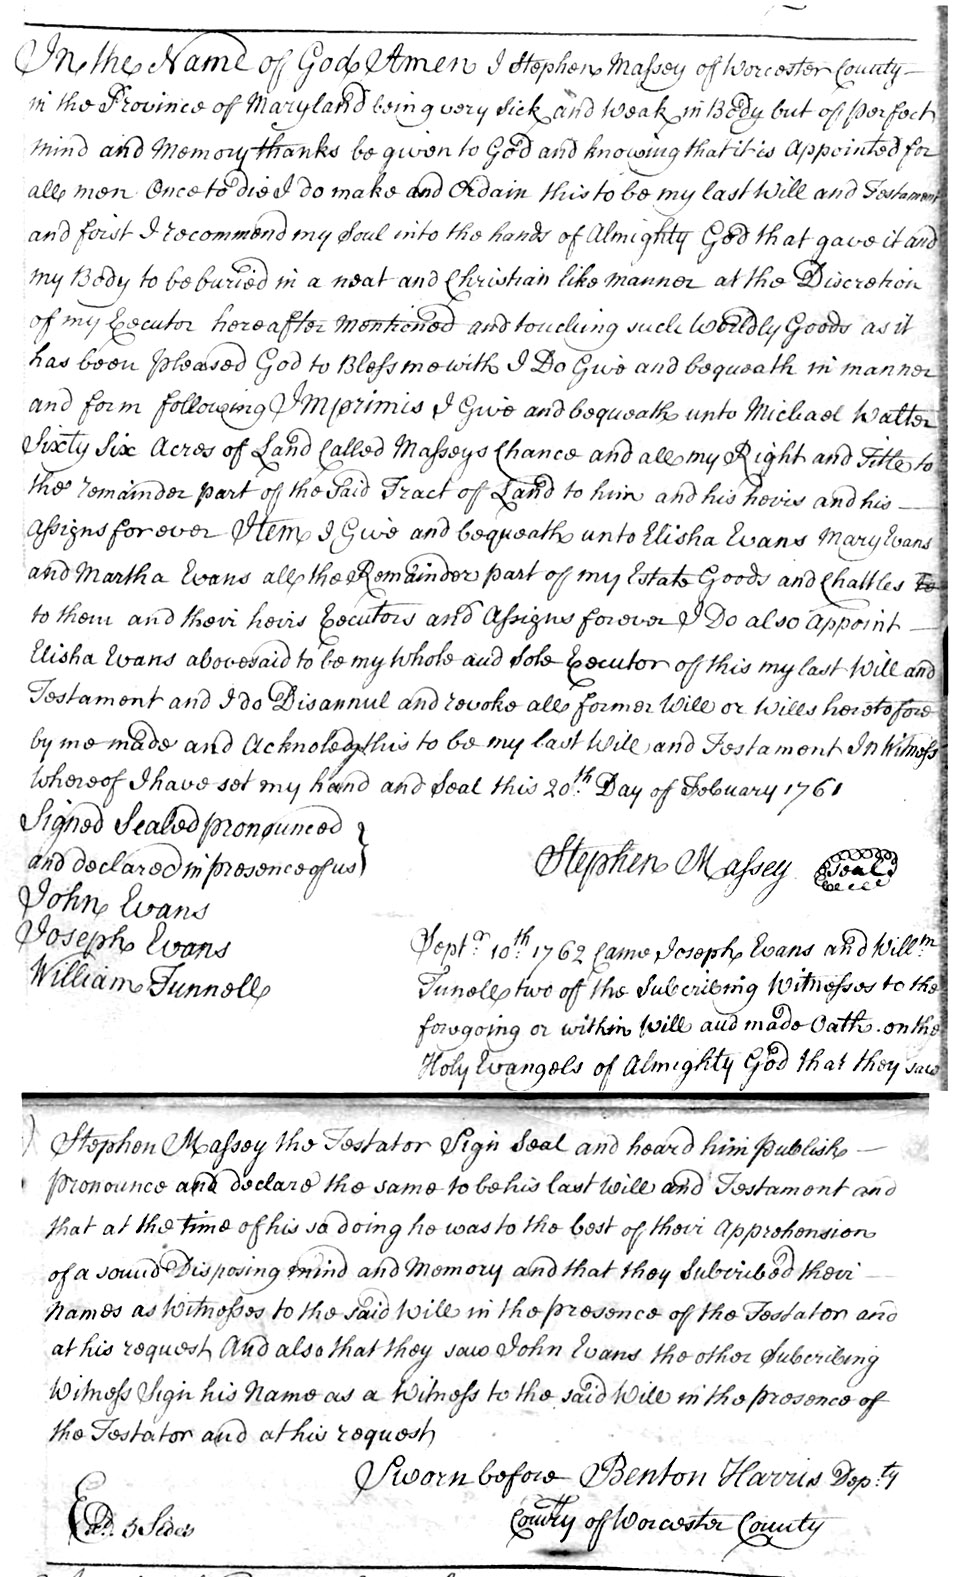 In the Name of God Amen I Stephen Massey of Worcester County
in the Province of Maryland being very Sick and Weak in Body but of perfect
mind and Memory thanks be given to God and knowing that it is Appointed for
all men Once to die I do make and Ordain this to be my last Will and Testament
and first I recommend my Soul into the hands of Almighty God that gave it and
my Body to be buried in a neat and Christian like manner at the Discretion
of my Executor hereafter Mentioned and touching such Worldly Goods as it
has been pleased God to Bless me with I Do Give and bequeath in manner
and form following Imprimis I Give and bequeath unto Michael Walter
Sixty Six Acres of Land Called Masseys Chance and all my Right and Title to
the remainder part of the Said Tract of Land to him and his heirs and his
Assigns forever Item I Give and bequeath unto Elisha Evans Mary Evans
and Martha Evans all the Remainder part of my Estate Goods and Chattles to
to them and their heirs Executors and Assigns forever I Do also Appoint
Elisha Evans abovesaid to be my Whole and Sole Executor of this my last Will and
Testament and I do Disannul and revoke all former Will or Wills heretofore
by me made and Acknoledg this to be my last Will and Testament In Witness
Whereof I have set my hand and Seal this 20th Day of Febuary 1761
Signed Sealed pronounced
and declared in presence of us
Stephen Massey Seal
John Evans
Joseph Evans
William Tunnell
Septr 10th 1762 Came Joseph Evans and Willm
Tunell two of the Subcribing Witnesses to the
foregoing or within Will and made Oath on the
Holy Evangels of Almighty God that they saw
Stephen Massey the Testator Sign Seal and heard him publish
pronounce and declare the same to be his last Will and Testament and
that at the time of his so doing he was to the best of their Apprehension
of a sound Disposing mind and Memory and that they Subcribed their
Names as Witnesses to the said Will in the presence of the Testator and
at his request And also that they saw John Evans the other Subcribing
Witness Sign his Name as a Witness to the said Will in the presence of
the Testator and at his request
Sworn before Benton Harris Depty
5 Sides
of Worcester County